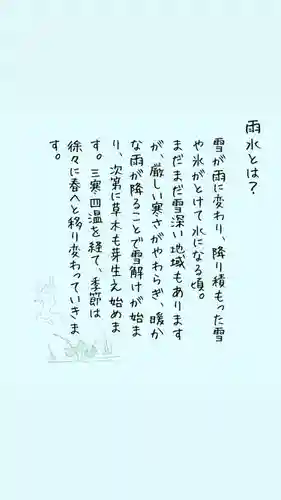 雨水とは？
雪が雨に変わり、降り積もった雪
や氷がとけて水になる頃。
まだまだ雪深い地域もあります
が、厳しい寒さがやわらぎ、暖か
な雨が降ることで雪解けが始ま
り、次第に草木も芽生え始めま
す。三寒四温を経て、季節は
徐々に春へと移り変わっていきま
す。